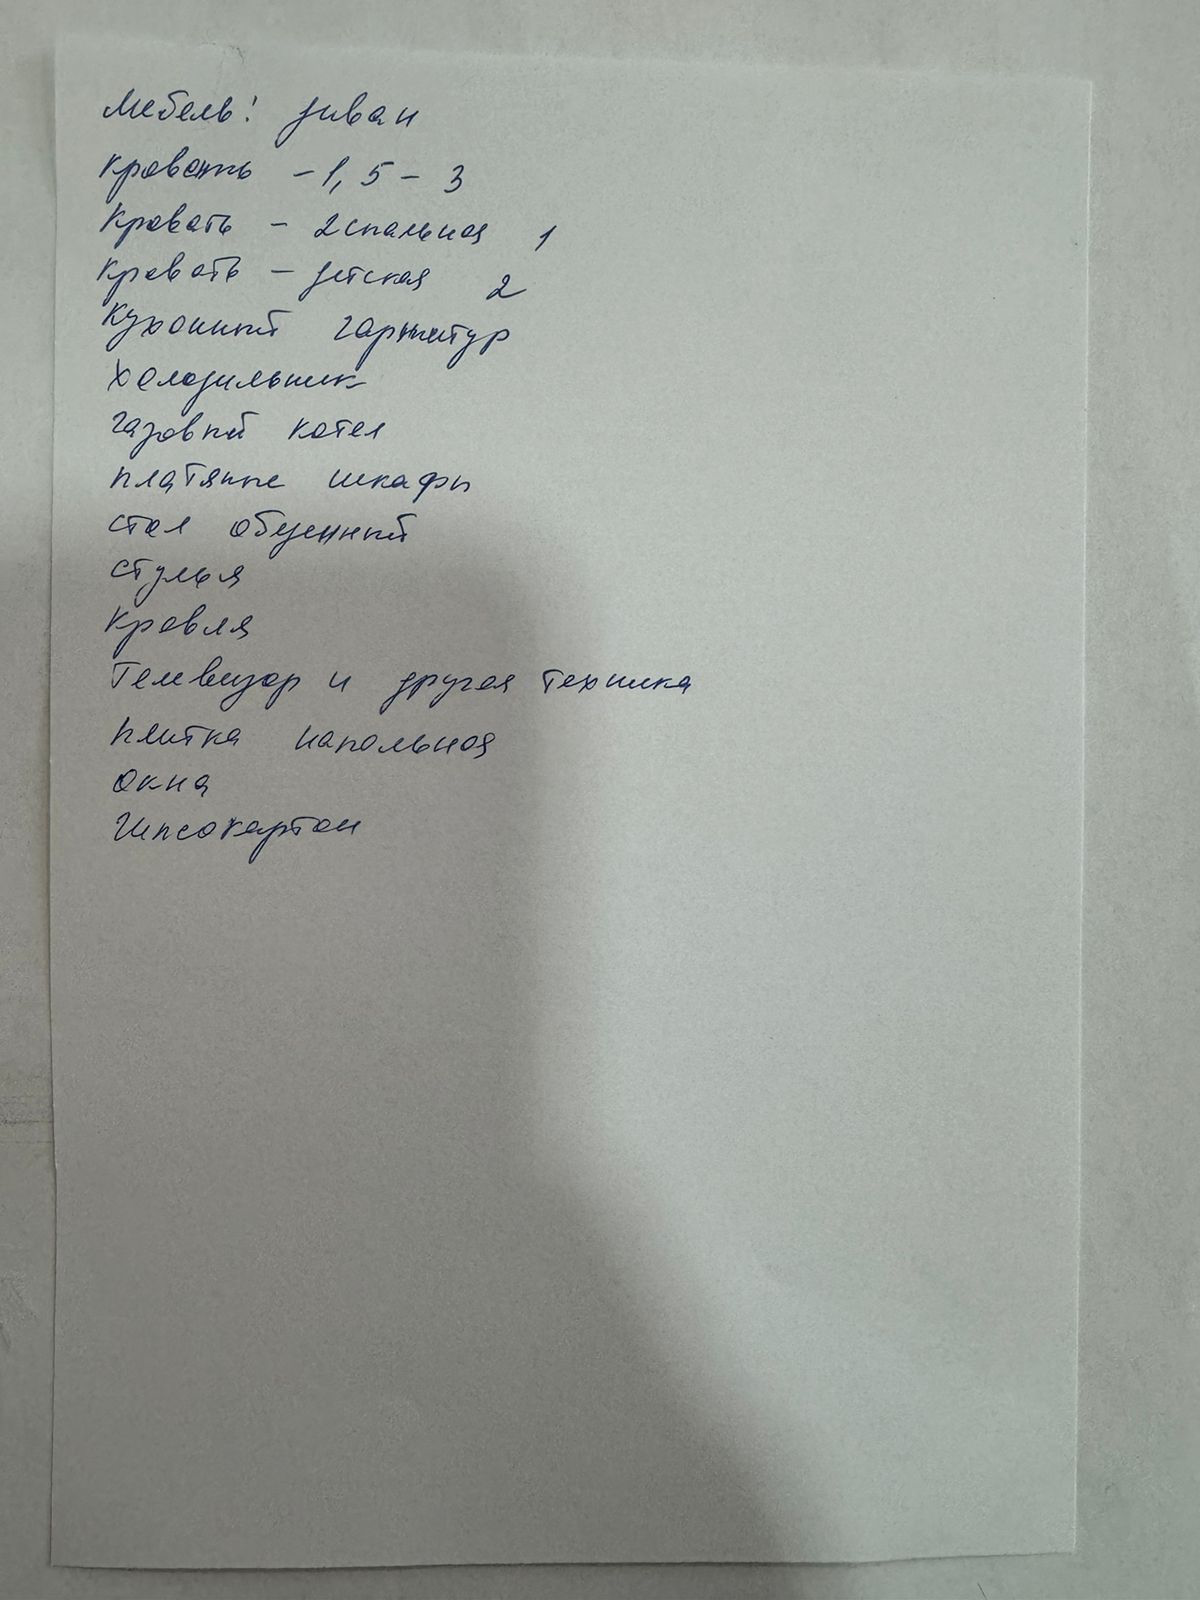 Мебель: диван
кровать - 1,5 - 3
Кровать - 2спальная 1
кровать - детская 2
Кухонный гарнитур
Холодильник
газовый котел
платяные шкафы
стол обеденный
стулья
Кровля
Телевизор и другая техника
плитка напольная
окна
Гипсокартон